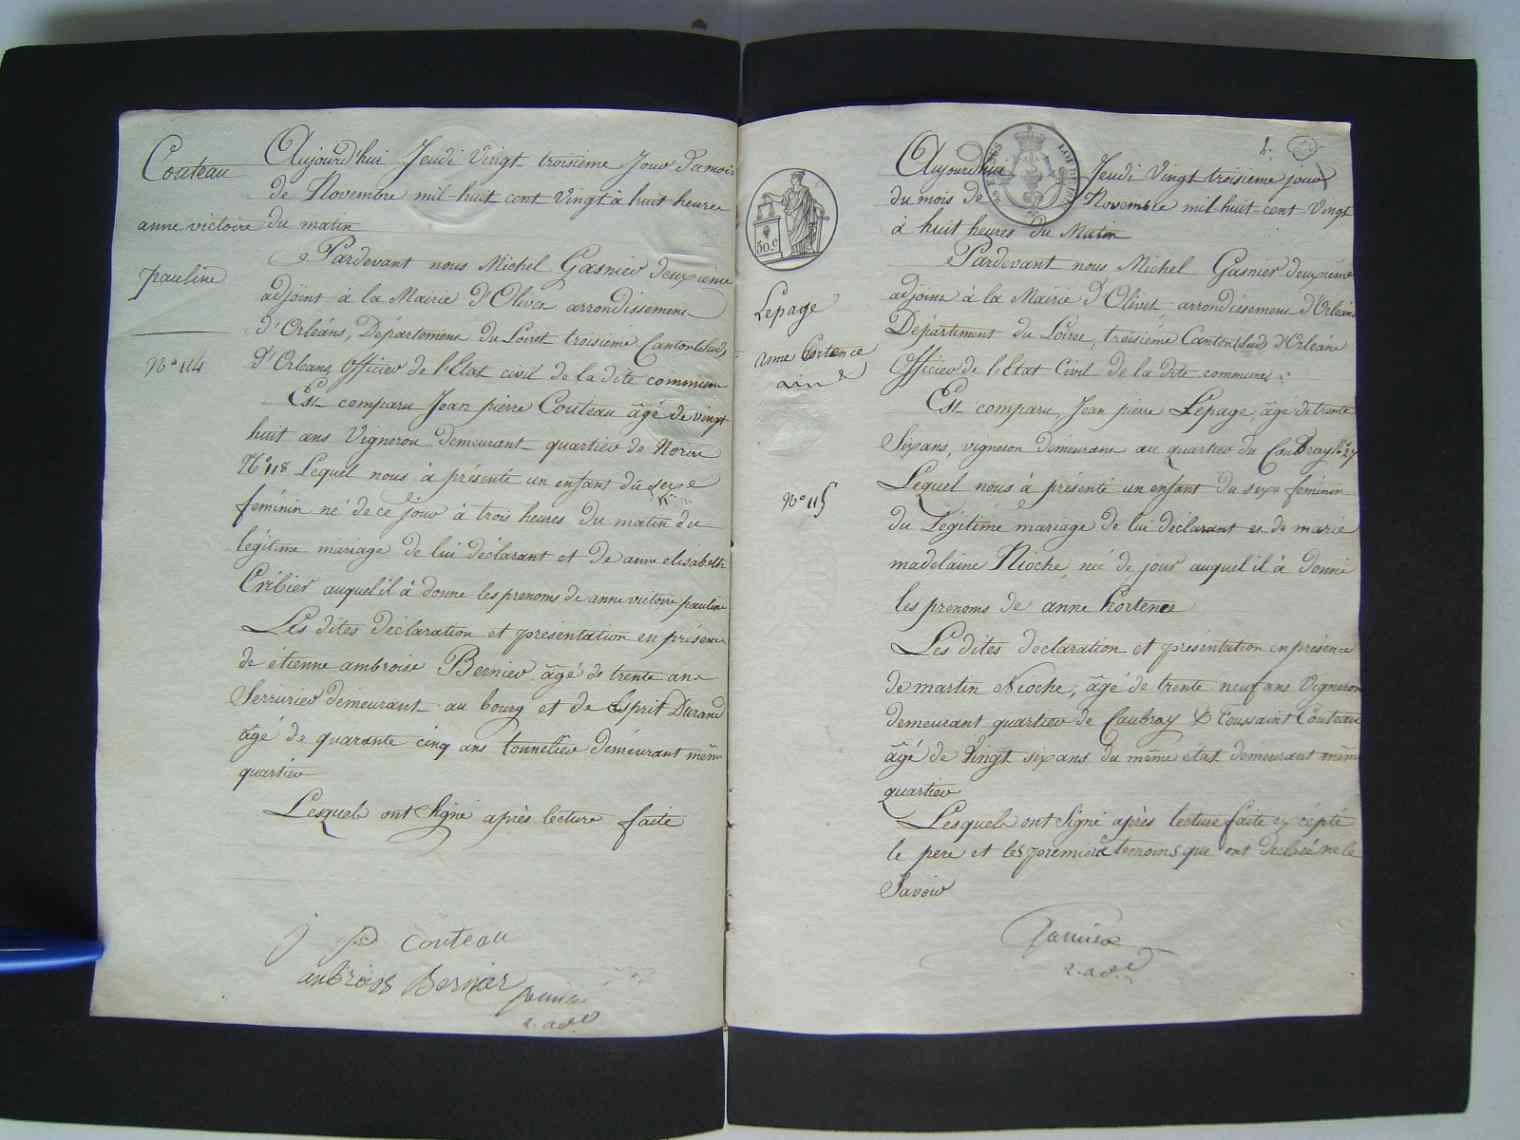 Couteau
anne victoire
pauline
N° 114
Aujourd'hui Jeudi Vingt troisième Jour du mois
de Novembre mil huit cent Vingt à huit heures
du matin
Pardevant nous Michel Gasnier deuxième
adjoint à la Mairie d'Olivet arrondissement
d'Orléans, Département du Loiret troisième Canton (sud)
d'Orléans officier de l'Etat civil de la dite commune
Est comparu Jean pierre Couteau âgé de vingt
huit ans Vigneron demeurant quartier de
N° 118 Lequel nous à présenté un enfant du sexe
féminin né de ce jour à trois heures du matin du
légitime mariage de lui déclarant et de anne elisabeth
Cribier auquel il à donne les prenoms de anne victoire pauline
Les dites déclaration et présentation en présence
de étienne ambroise Bernier âgé de trente ans
Serrurier demeurant au bourg et de Esprit Durand
âgé de quarante cinq ans tonnelier demeurant même
quartier
Lesquels ont signé après lecture faite
J P Couteau
ambrois Bernier
2. adt
50.c
Lepage
anne hortence
N° 115
LOI DU
Aujourd'hui Jeudi Vingt troisieme jour
du mois de Novembre mil huit cent Vingt
à huit heures du Matin
Pardevant nous Michel Gasnier deuxième
adjoint à la Mairie d'Olivet, arrondissement d'Orléans
Département du Loiret, troisième Canton (sud) d'Orléans
Officier de l'Etat Civil de la dite commune
Est comparu, Jean pierre Lepage, âgé de trente
Six ans, vigneron demeurant au quartier du Caubray N° 27
Lequel nous à présenté un enfant du sexe féminin
du Légitime mariage de lui déclarant et de marie
madelaine Nioche, née de jour auquel il à donné
les prenoms de anne hortence
Les dites declaration et présentation en présence
de martin Nioche, âgé de trente neuf ans Vigneron
demeurant quartier de Caubray & Toussaint Couteau
âgé de Vingt six ans du même état demeurant même
quartier
Lesquels ont Signé après lecture faite excépté
le pere et les premiere temoins que ont déclaré ne le
Savoir
2. adt